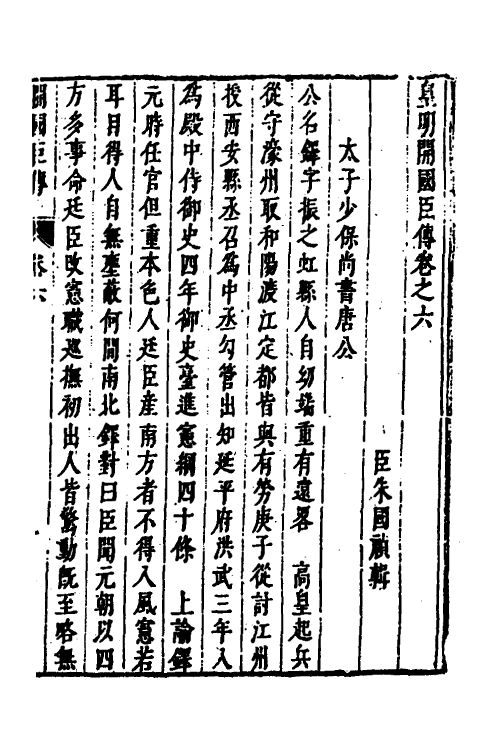 皇明開國臣傳卷之六
臣朱國禎輯
太子少保尚書唐公
公名鐸字振之虹縣人自幼端重有遠畧　高皇起兵
從守濠州取和陽渡江定都皆與有勞庚子從討江州
授西安縣丞召為中丞勾管出知延平府洪武三年入
為殿中侍御史四年御史臺進憲綱四十條　上諭鐸
元時任官但重本色人廷臣産南方者不得入風憲若
耳目得人自無壅蔽何間南北鐸對曰臣聞元朝以四
方多事命廷臣改憲職巡撫初出人皆驚動旣至略無
開國臣傳　卷六